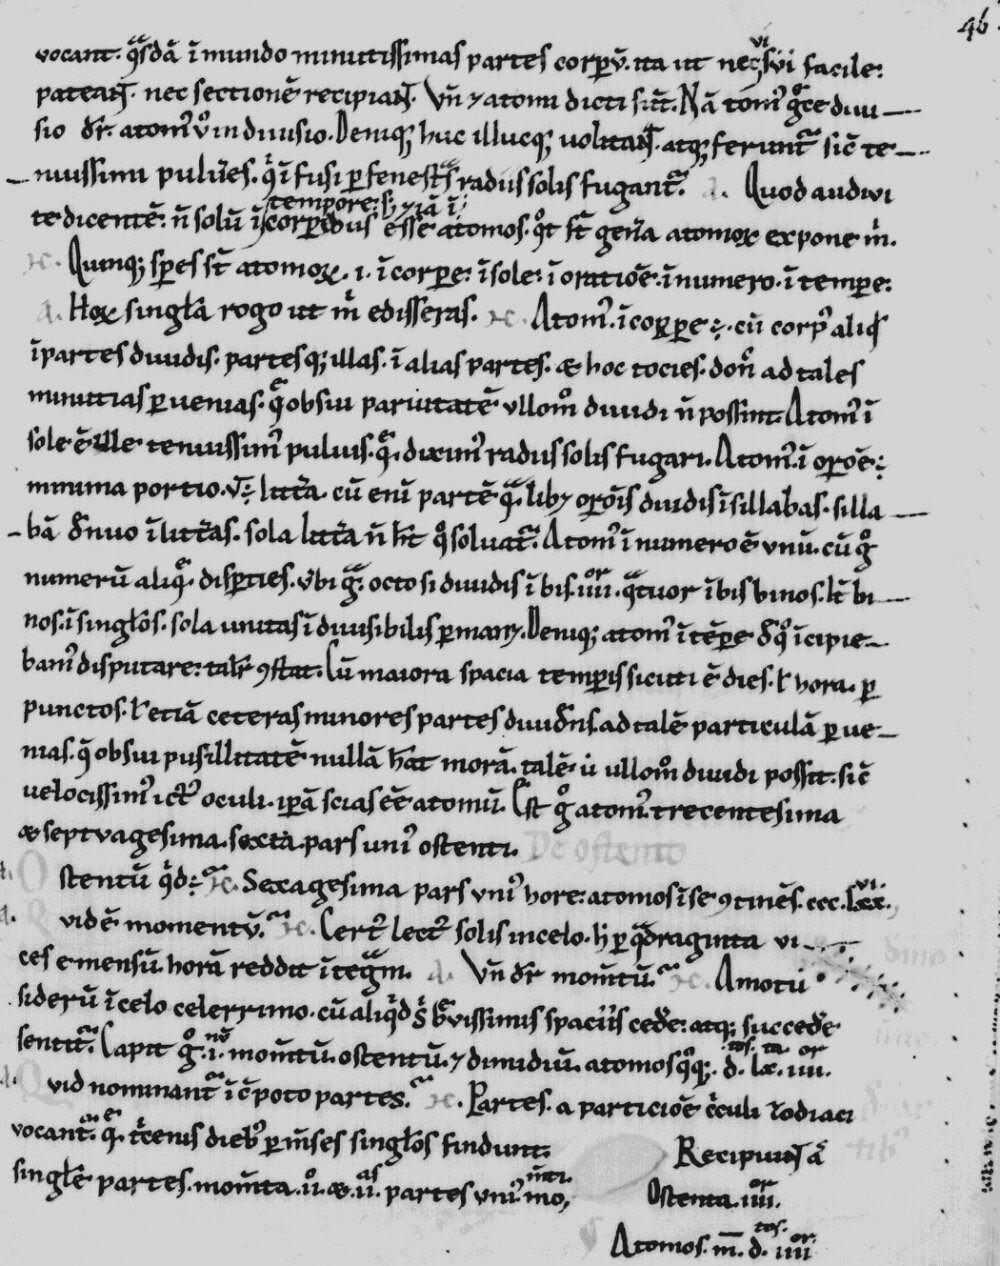 46
vocant. q̄sdā ī mundo minutissimas partes corpoꝝ. ita ut nec visui facile
pateant. nec sectionē recipiant. Vn̄ ⁊ atomi dicti sūt. Nā tomꝰ grece diui
sio dr̄. atomꝰ ū indiuisio. Deniqꝫ huc illucqꝫ uolitant. atqꝫ ferunt͛ sic̄ te
nuissimi pulueres. qui īfusi ꝑ fenestras radiis solis fugant͛. Δ. Quod audiui
tempore: sꝫ ⁊ iā ī
te dicentē. n̄ solū ī corporibus esse atomos. quot st̄ genera atomoꝝ expone m̄.
Quinqꝫ spēs st̄ atomoꝝ. i. ī corpore: ī sole: ī oratiōe. ī numero. ī tempore:
Δ. Hoꝝ singula rogo ut m̄ edisseras. Atomꝰ ī corpore: cū corpꝰ aliqd̄
īpartes diuidis. partesqꝫ illas. ī alias partes. & hoc tocies. donͨ ad tales
minutias ꝑuenias. quę ob sui paruitatē ullomō diuidi n̄ possint. Atomꝰ ī
sole ē ille tenuissimꝰ puluis. quē diximꝰ radiis solis fugari. Atomꝰ ī orōe:
minima portio. ū: littera. cū enī partē quālibꝫ orōis diuidis ī sillabas. silla
bā denuo ī litteras. sola littera n̄ ht̄ quo soluat͛. Atomꝰ ī numero ē unū. cū gͦ
numerū aliquē disperties. ubi gr̄a. octo si diuidis ī bis .iiii. quatuor ī bis binos. ł bi
nos ī singłos. sola unitas ī diuisibilis ꝑmanꝫ. Deniqꝫ atomꝰ ī tēpore de quo īcipie
bamꝰ disputare: talit̄ ꝯstat. Cū maiora spacia temporis sicuti ē dies. ł hora. ꝑ
punctos. ł etiā ceteras minores partes diuidens. ad talē particulā ꝑue
nias. quę ob sui pusillitatē nullā hāt morā. talē ū ullomō diuidi possit. sic̄
uelocissimꝰ ictꝰ oculi. ipā scias eē atomū. Est gͦ atomꝰ. trecentesima
& septuagesima. sexta. pars unīꝰ ostenti. De ostento
Ostentū quid: Sexagesima pars unīꝰ hore: atomos ī se ꝯtinēs. ccc. lxx. vi.
Δ. Quid ē momentū. Certꝰ lectꝰ solis in celo. hͨ ꝑ quadraginta ui
ces emensū. horā reddit ītegram. Δ. Vn̄ dr̄ momtū. A motu
siderū ī celo celerrimo. cū aliquid sibi breuissimis spaciis cedere: atqꝫ succedere
sentit͛. Capit gͦ .i. momtū. ostentū. ⁊ dimidiū. atomos quoqꝫ. d. lx. iiii.
Δ. Quid nominant͛ ī cōpoto partes. Partes. a particiōe circuli zodiaci
vocant͛. quę tricenis diebꝰ ꝑ m̄ses singłos findunt.
Recipiunt͛
singłe partes. momta. ii. & ii. partes unīꝰ mom̄ti
Ostenta. iiii.
Atomos. m̄. d. iiii